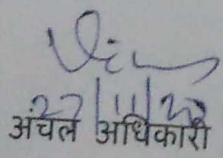 27/11/20
अंचल अधिकारी